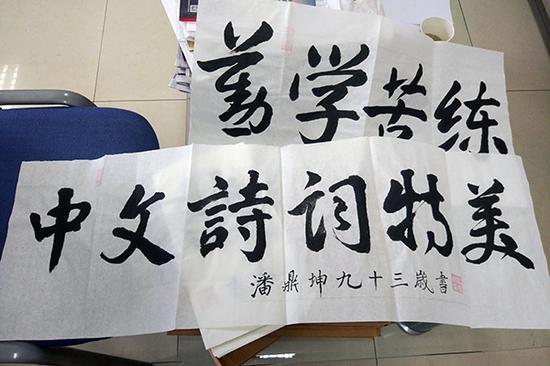 勤学苦练
中文詩词特美
潘鼎坤九十三歳書